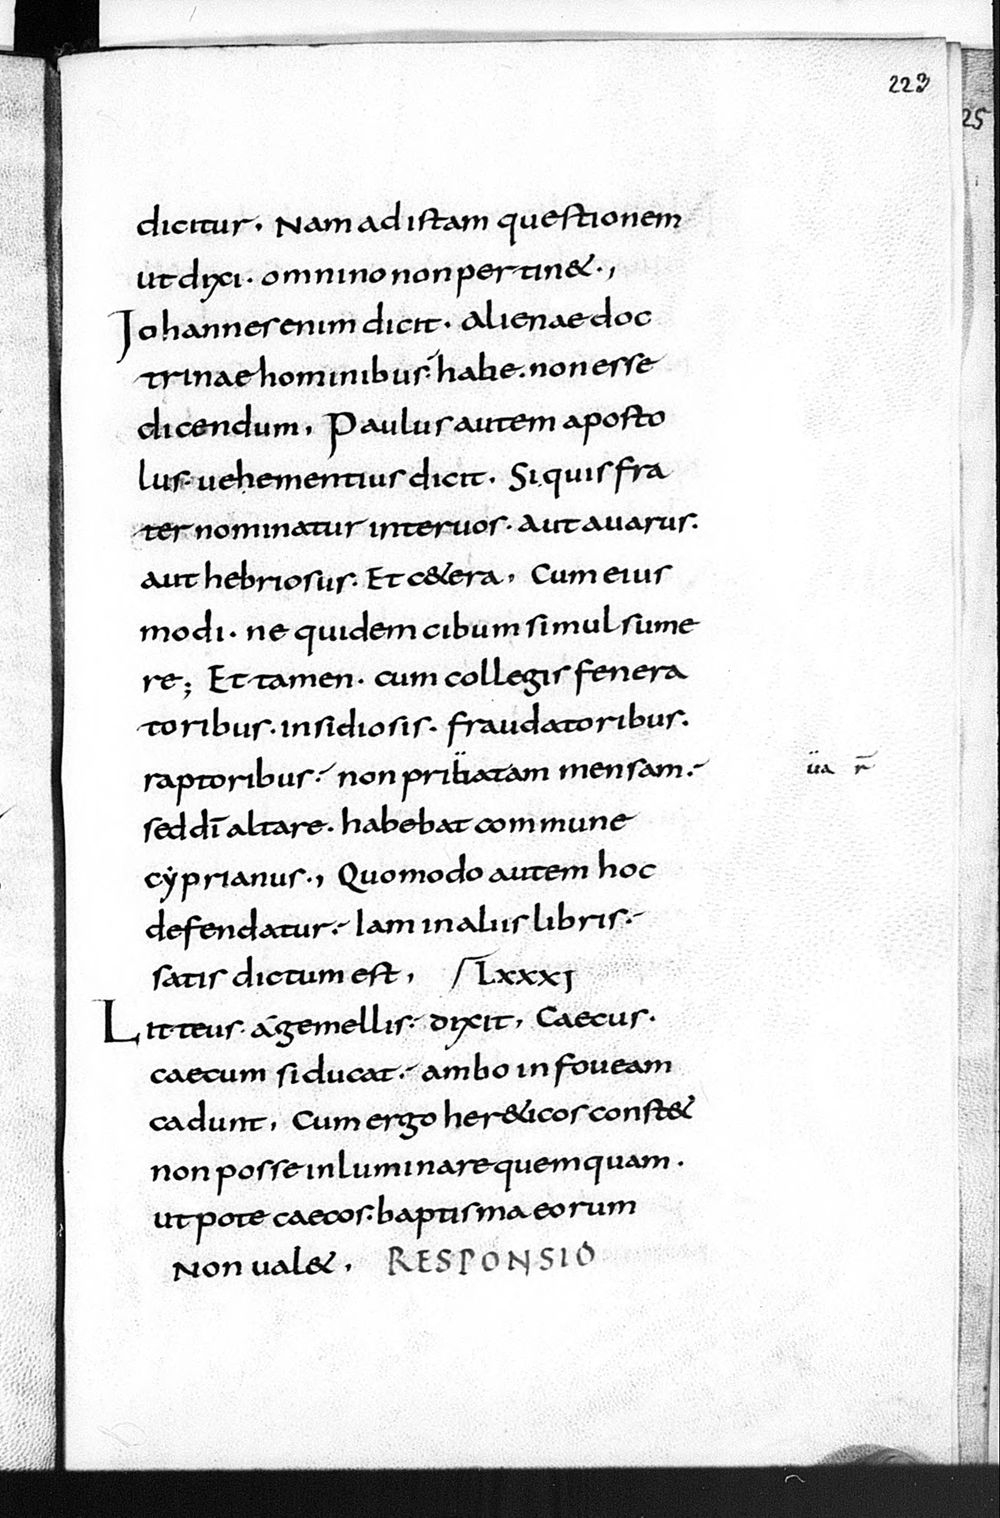 223
25
dicitur. Nam ad istam questionem
ut dixi. omnino non pertin&.,
Johannes enim dicit. Alienae doc
trinae hominibus. haue. non esse
dicendum, Paulus autem aposto
lus. uehementius dicit. Si quis fra
ter nominatur inter uos. aut auarus.
aut hebriosus. Et c&era, Cum eius
modi. ne quidem cibum simul sume
re; Et tamen. cum collegis fenera
toribus. insidiosis. fraudatoribus.
raptoribus. non pribatam mensam.
sed dī altare. habebat commune
cẏprianus., Quomodo autem hoc
defendatur. Iam in aliis libris.
satis dictum est, LXXXI
Litteus. a gemellis. dixit, Caecus.
caecum si ducat. ambo in foueam
cadunt, Cum ergo her&icos const&
non posse inluminare quemquam.
ut pote caecos. baptisma eorum
Non ual&, RESPONSIO